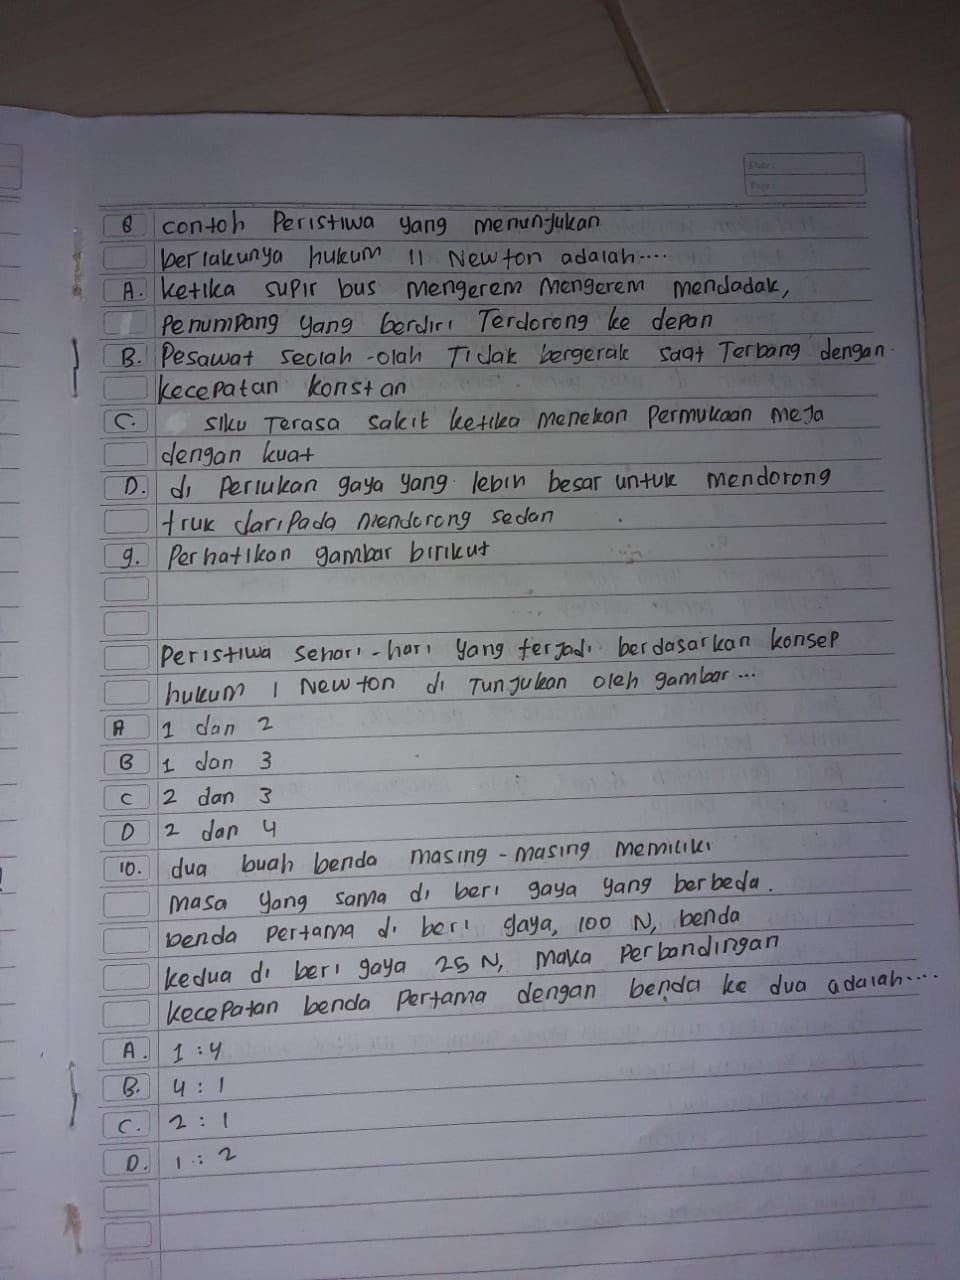 Date:
Page:
8 contoh Peristiwa yang menunjukan
berlakunya hukum II Newton adalah....
A. ketika supir bus mengerem Mengerem mendadak,
Penumpang yang berdiri Terdorong ke depan
B. Pesawat seolah-olah Tidak bergerak saat Terbang dengan
kecepatan konstan
C. siku Terasa sakit ketika menekan Permukaan meja
dengan kuat
D. di Perlukan gaya yang lebih besar untuk mendorong
truk daripada mendorong sedan
9. Perhatikan gambar birikut
Peristiwa sehari-hari yang terjadi berdasarkan konsep
hukum I Newton di Tunjukan oleh gambar...
A 1 dan 2
B 1 dan 3
C 2 dan 3
D 2 dan 4
10. dua buah benda masing-masing memiliki
masa yang sama di beri gaya yang berbeda.
benda Pertama di beri gaya, 100 N, benda
kedua di beri gaya 25 N, maka Perbandingan
kecepatan benda Pertama dengan benda ke dua adalah....
A. 1:4
B. 4:1
C. 2:1
D. 1:2